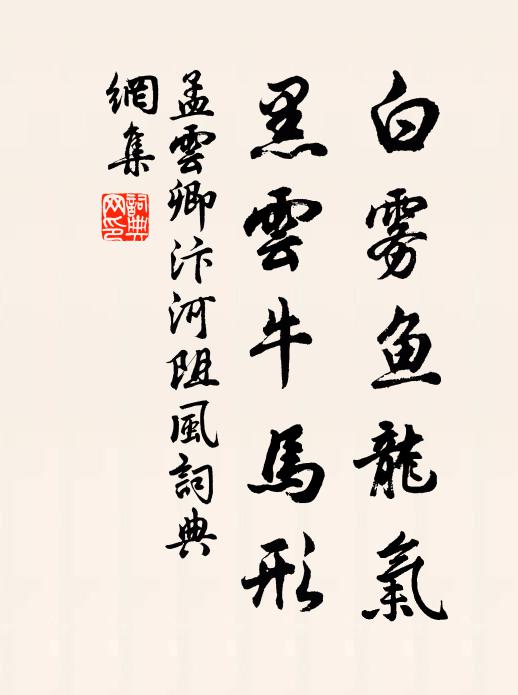 白雾鱼龍氣
黑雲牛馬形
孟雲卿汴河阻風詞典
網集
詞典
网印